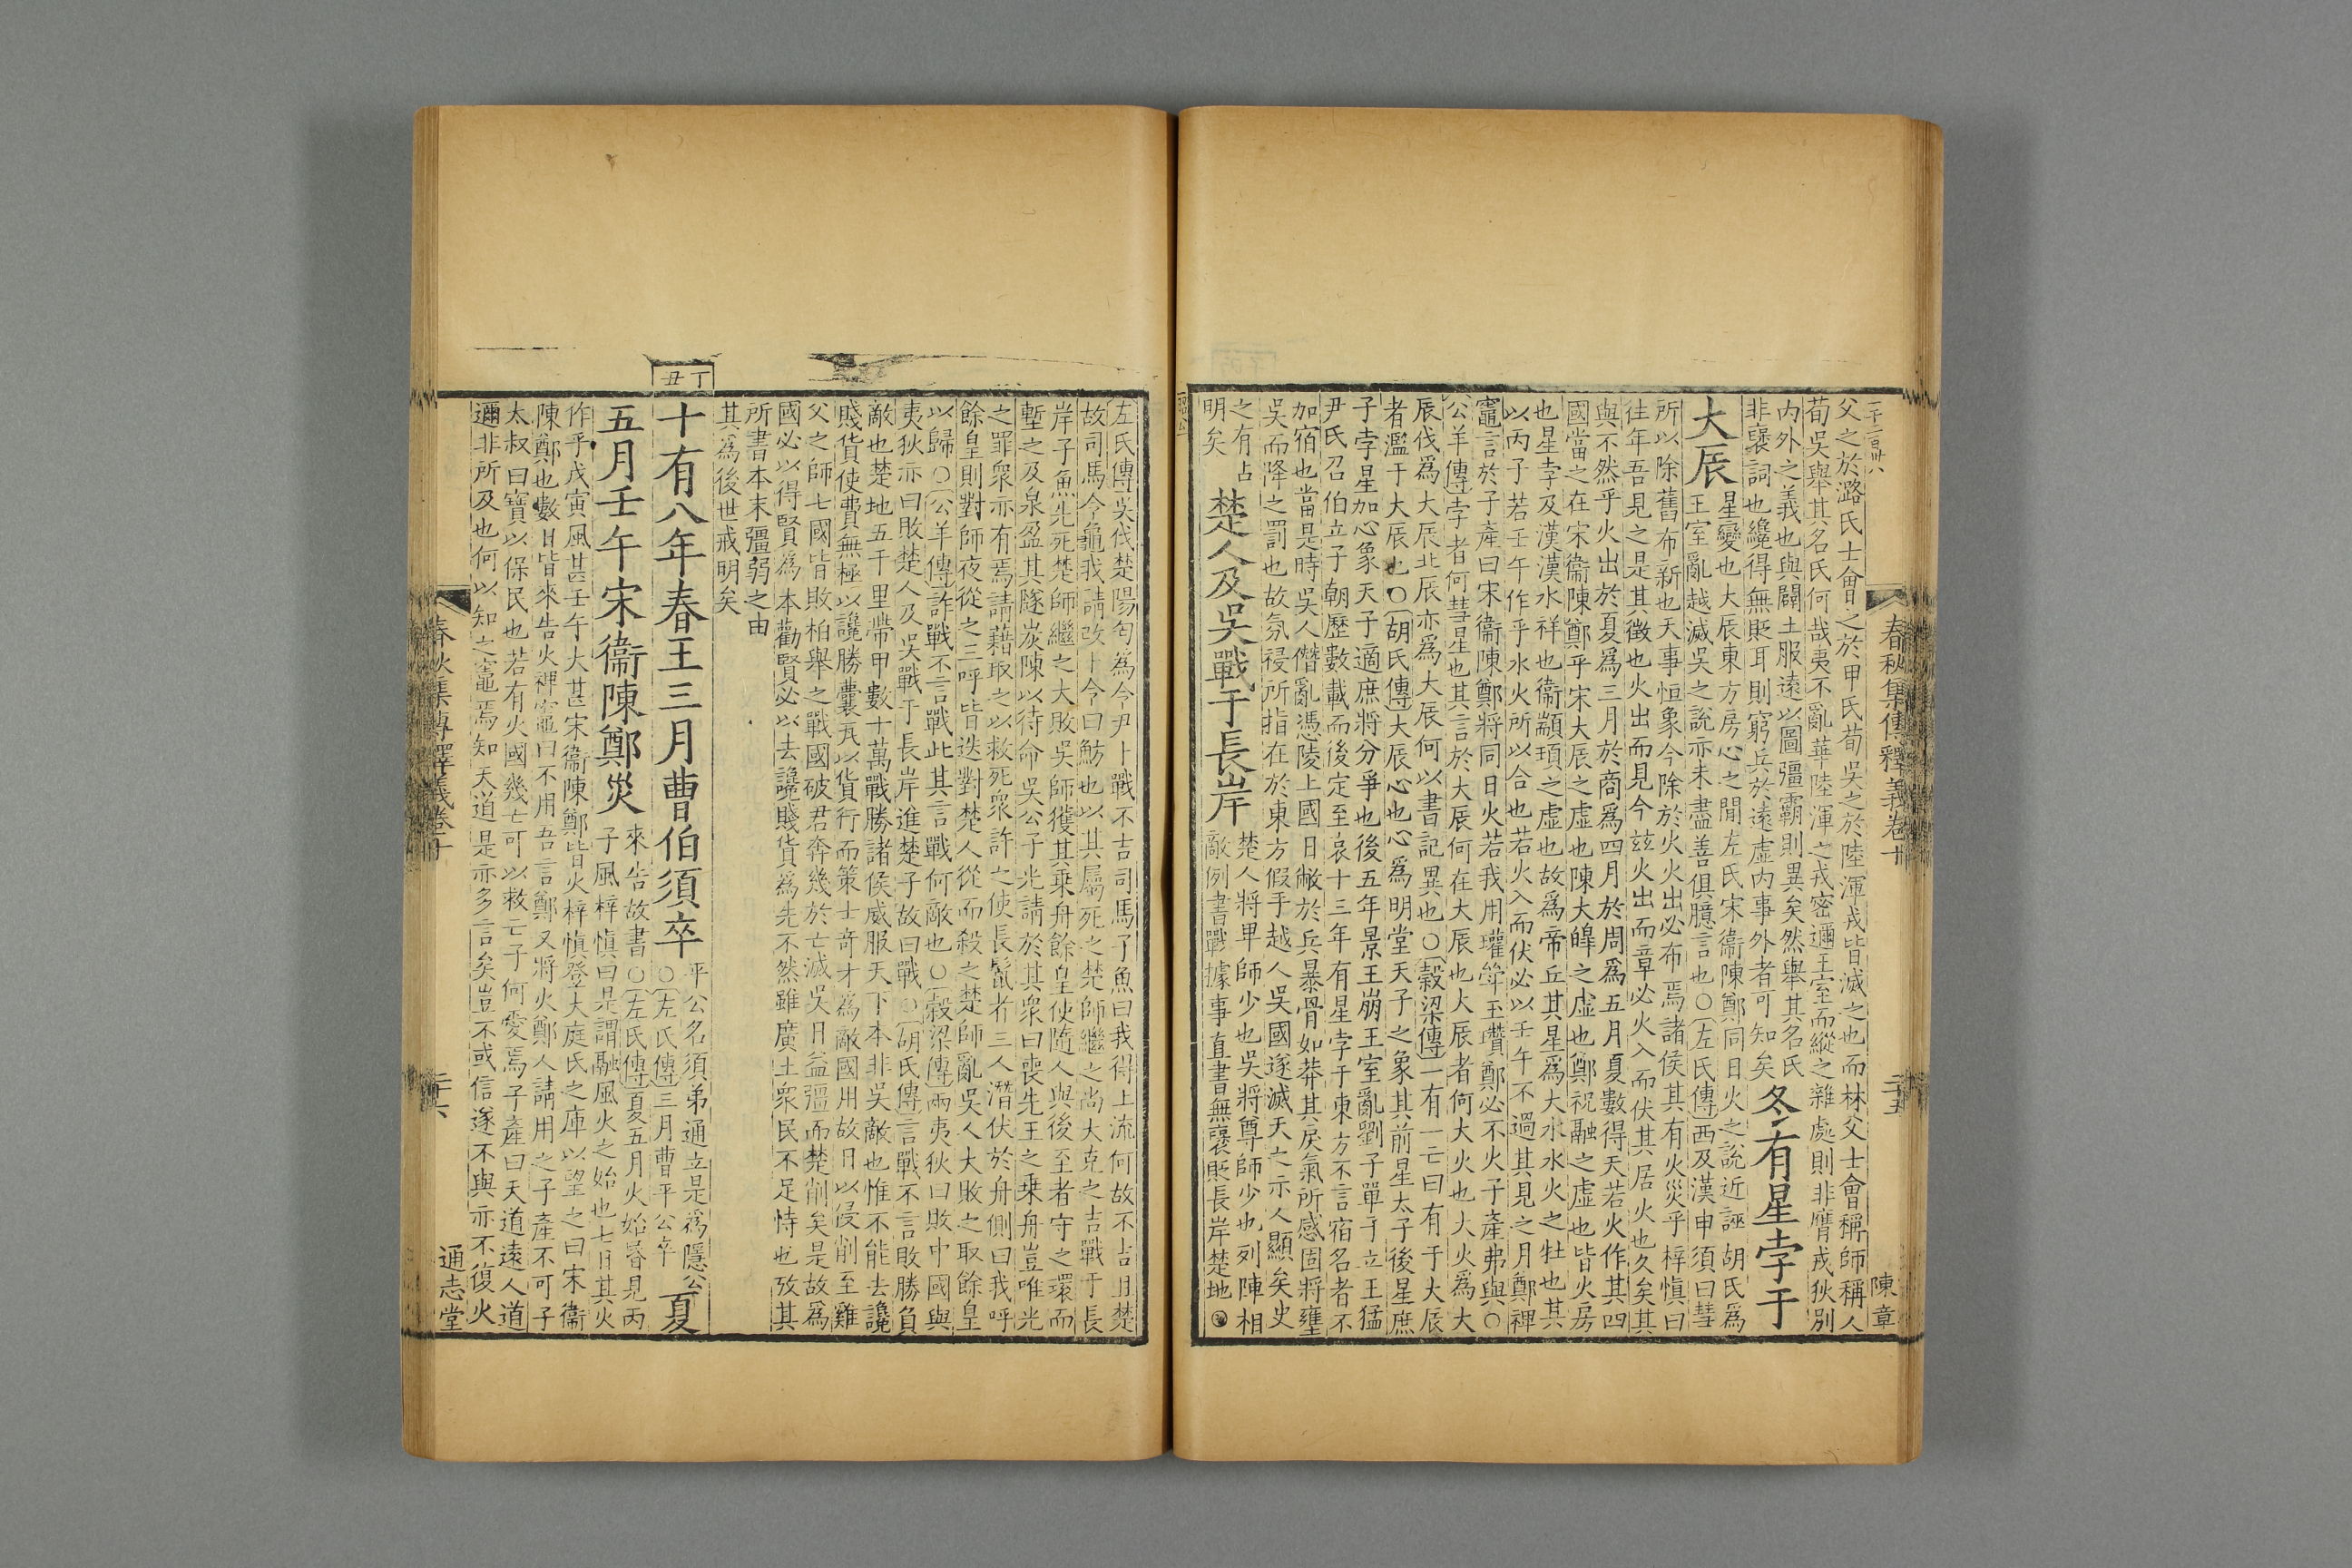 春秋集傳釋義卷廿
二十五
陳章
父之於潞氏士會之於甲氏荀吳之於陸渾戎皆滅之也而林父士會稱師稱人
荀吳舉其名氏何哉夷不亂華陸渾之戎密邇王室而縱之雜處則非膺戎狄別
內外之義也與闢土服遠以圖彊霸則異矣然舉其名氏
非襃詞也纔得無貶耳則窮兵於遠虛內事外者可知矣
冬有星孛于
大辰
星變也大辰東方房心之閒左氏宋衞陳鄭同日火之說近誣胡氏爲
王室亂越滅吳之說亦未盡善俱臆言也○左氏傳西及漢申須曰彗
所以除舊布新也天事恒象今除於火火出必布焉諸侯其有火災乎梓愼曰
往年吾見之是其徵也火出而見今茲火出而章必火入而伏其居火也久矣其
與不然乎火出於夏爲三月於商爲四月於周爲五月夏數得天若火作其四
國當之在宋衞陳鄭乎宋大辰之虛也陳大皥之虛也鄭祝融之虛也皆火房
也星孛及漢漢水祥也衞顓頊之虛也故爲帝丘其星爲大水水火之牡也其
以丙子若壬午作乎水火所以合也若火入而伏必以壬午不過其見之月鄭裨
竈言於子產曰宋衞陳鄭將同日火若我用瓘斚玉瓚鄭必不火子產弗與○
公羊傳孛者何彗星也其言於大辰何在大辰也大辰者何大火也大火爲大
辰伐爲大辰北辰亦爲大辰何以書記異也○穀梁傳一有一亡曰有于大辰
者濫于大辰也○胡氏傳大辰心也心爲明堂天子之象其前星太子後星庶
子孛星加心象天子適庶將分爭也後五年景王崩王室亂劉子單子立王猛
尹氏召伯立子朝歷數載而後定至哀十三年有星孛于東方不言宿名者不
加宿也當是時吳人僭亂憑陵上國日敝於兵暴骨如莽其戾氣所感固將壅
吳而降之罰也故氛祲所指在於東方假手越人吳國遂滅天之示人顯矣史
之有占
明矣
楚人及吳戰于長岸
楚人將卑師少也吳將尊師少也列陣相
敵例書戰據事直書無襃貶長岸楚地
左氏傳吳伐楚陽匄爲令尹卜戰不吉司馬子魚曰我得上流何故不吉且楚
故司馬令龜我請改卜令曰魴也以其屬死之楚師繼之尚大克之吉戰于長
岸子魚先死楚師繼之大敗吳師獲其乗舟餘皇使隨人與後至者守之環而
塹之及泉盈其隧炭陳以待命吳公子光請於其衆曰喪先王之乗舟豈唯光
之罪衆亦有焉請藉取之以救死衆許之使長鬛者三人潛伏於舟側曰我呼
餘皇則對師夜從之三呼皆迭對楚人從而殺之楚師亂吳人大敗之取餘皇
以歸○公羊傳詐戰不言戰此其言戰何敵也○穀梁傳兩夷狄曰敗中國與
夷狄亦曰敗楚人及吳戰于長岸進楚子故曰戰○胡氏傳言戰不言敗勝負
敵也楚地五千里帶甲數十萬戰勝諸侯威服天下本非吳敵也惟不能去讒
賤貨使費無極以讒勝囊瓦以貨行而策士奇才爲敵國用故日以侵削至雞
父之師七國皆敗柏舉之戰國破君奔幾於亡滅吳日益彊而楚削矣是故爲
國必以得賢爲本勸賢必以去讒賤貨爲先不然雖廣土衆民不足恃也攷其
所書本末彊弱之由
其爲後世戒明矣
丁丑
十有八年春王三月曹伯須卒
平公名須弟通立是爲隱公
○左氏傳三月曹平公卒
夏
五月壬午宋衞陳鄭災
來告故書○左氏傳夏五月火始昬見丙
子風梓愼曰是謂融風火之始也七日其火
作乎戊寅風甚壬午大甚宋衞陳鄭皆火梓愼登大庭氏之庫以望之曰宋衞
陳鄭也數日皆來告火裨竈曰不用吾言鄭又將火鄭人請用之子產不可子
太叔曰寶以保民也若有火國幾亡可以救亡子何愛焉子產曰天道遠人道
邇非所及也何以知之竈焉知天道是亦多言矣豈不或信遂不與亦不復火
春秋集傳釋義卷廿
二十六
通志堂